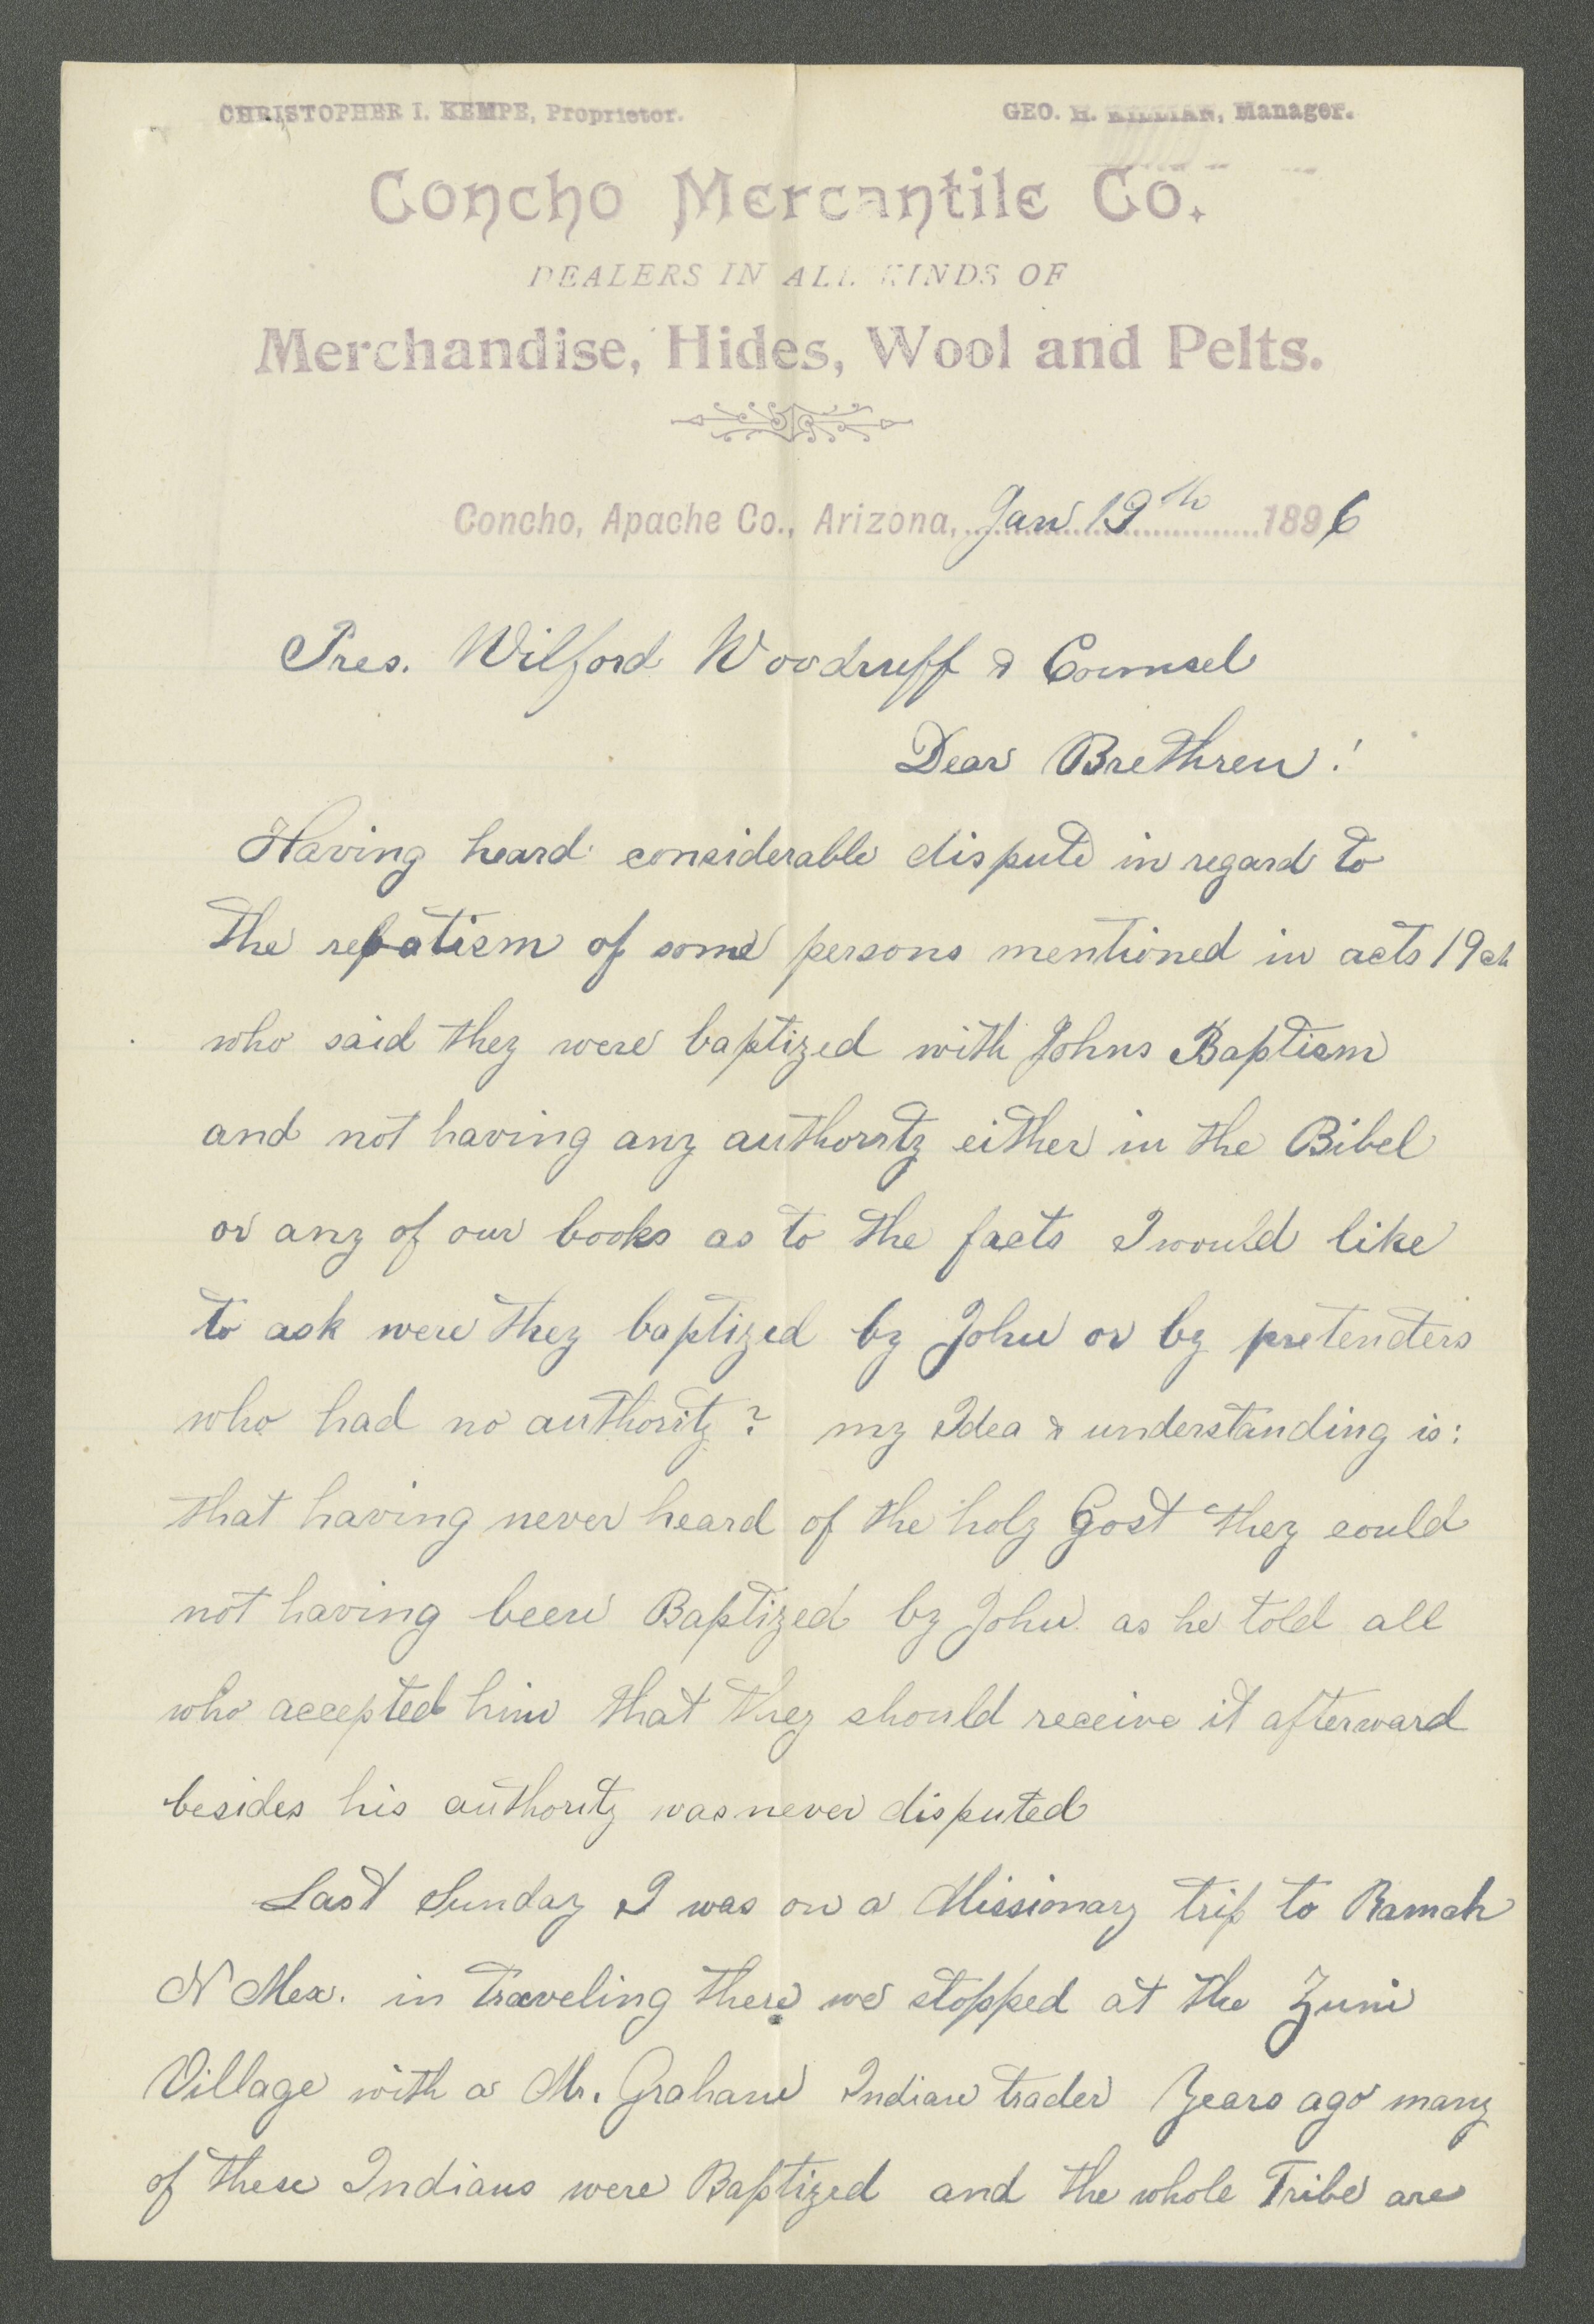 CHRISTOPHER I. KEMPE, Proprietor.
GEO. H. KILLIAN, Manager.
Concho Mercantile Co.
DEALERS IN ALL KINDS OF
Merchandise, Hides, Wool and Pelts.
Concho, Apache Co., Arizona, Jan 19th 1896
Pres. Wilford Woodruff & Counsel
Dear Brethren!
Having heard considerable dispute in regard to
the rebatism of some persons mentioned in acts 19 ch
who said they were baptized with Johns Baptism
and not having any authority either in the Bibel
or any of our books as to the facts I would like
to ask were they baptized by John or by pretenders
who had no authority? my Idea & understanding is:
that having never heard of the holy Gost they could
not having been Baptized by John as he told all
who accepted him that they should receive it afterward
besides his authority was never disputed
Last Sunday I was on a Missionary trip to Ramah
N Mex. in traveling there we stopped at the Zuni
Village with a Mr. Graham Indian trader Years ago many
of these Indians were Baptized and the whole Tribe are